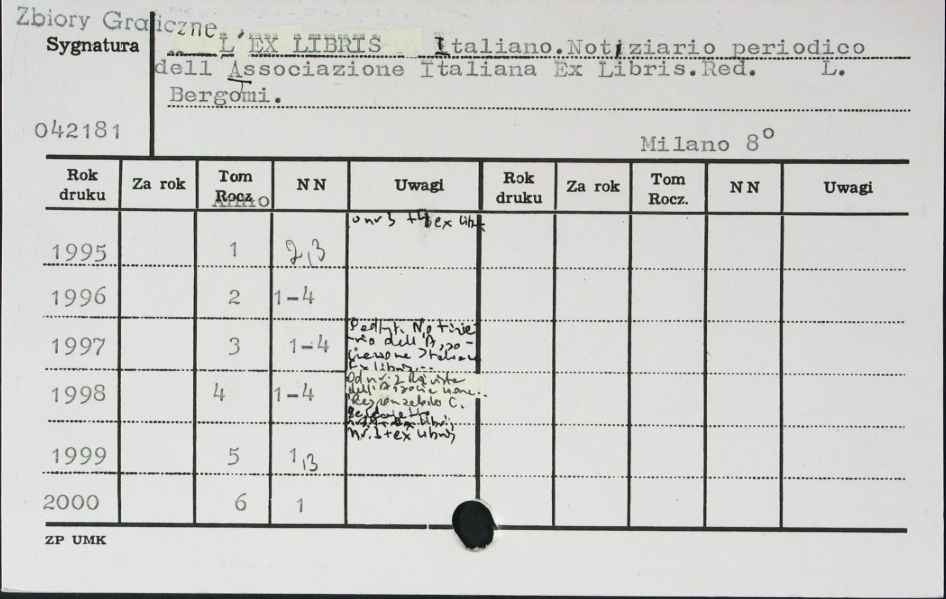 Zbiory Graficzne
Sygnatura
L'EX LIBRIS Italiano. Notiziario periodico
dell Associazione Italiana Ex Libris. Red. L.
Bergomi.
042181
Milano 8°
Rok druku Za rok Tom Rocz. NN Uwagi Rok druku Za rok Tom Rocz. NN Uwagi
Anno
nr 3 + ex libr
1995 1 2,3
1996 2 1-4
Podtyt. Notizia-
rio dell'A
1997 3 1-4
Italiana
Ex libris...
Od nr. 2 Rivista
1998 4 1-4
dell'Associazione..
C.
nr. 3 + ex libris
1999 5 1,3
2000 6 1
ZP UMK